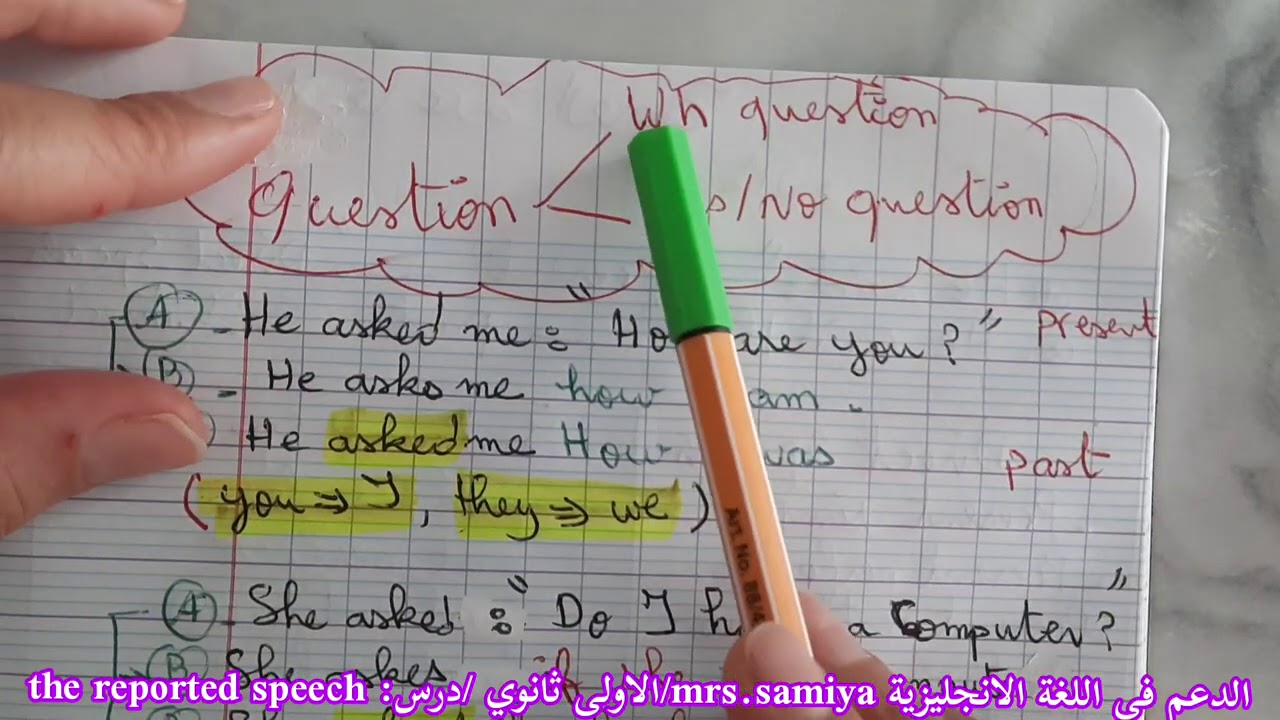 Wh question
Question
/No question
A - He asked me : " How are you ? " present
B - He asks me how am .
He asked me How was past
( you ⇒ I , they ⇒ we )
A - She asked : " Do I h a Computer ? "
B She askes if she
Art. No. 88/4
الدعم في اللغة الانجليزية mrs.samiya/الاولى ثانوي /درس: the reported speech